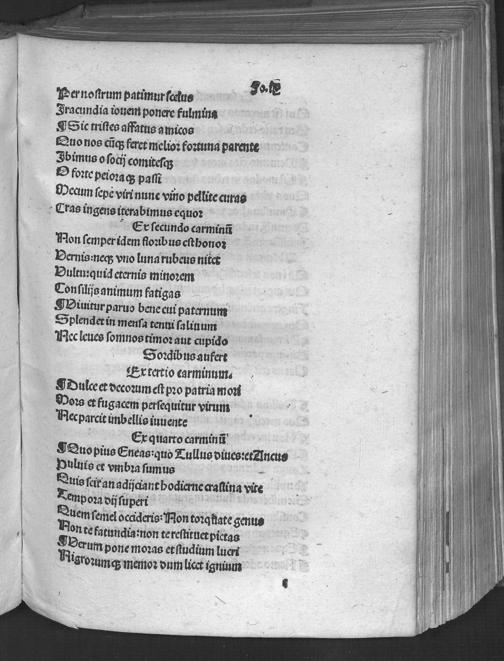 Fo. lx
Per nostrum patimur scelus
Iracundia iouem ponere fulmina
¶ Sic tristes affatus amicos
Quo nos cũq; feret melior fortuna parente
Ibimus o socij comitesq;
O forte peioraq; passi
Mecum sepe viri nunc vino pellite curas
Cras ingens iterabimus equor
Ex secundo carminũ
Non semper idem floribus est honor
Vernis: neq; vno luna rubeus nitet
Vultu: quid eternis minorem
Consilijs animum fatigas
¶ Viuitur paruo bene cui paternum
Splendet in mensa tenui salinum
Nec leues somnos timor aut cupido
Sordibus aufert
Ex tertio carminum.
¶ Dulce et decorum est pro patria mori
Mors et fugacem persequitur virum
Nec parcit imbellis iuuente
Ex quarto carminũ
¶ Quo pius Eneas: quo Tullus diues: et Ancus
Puluis et vmbra sumus
Quis scit an adijciant hodierne crastina vite
Tempora dij superi
Quem semel occideris: Non torq̃uate genus
Non te facundia: non te restituet pietas
¶ Verum pone moras et studium lucri
Nigrorumq; memor dum licet ignium